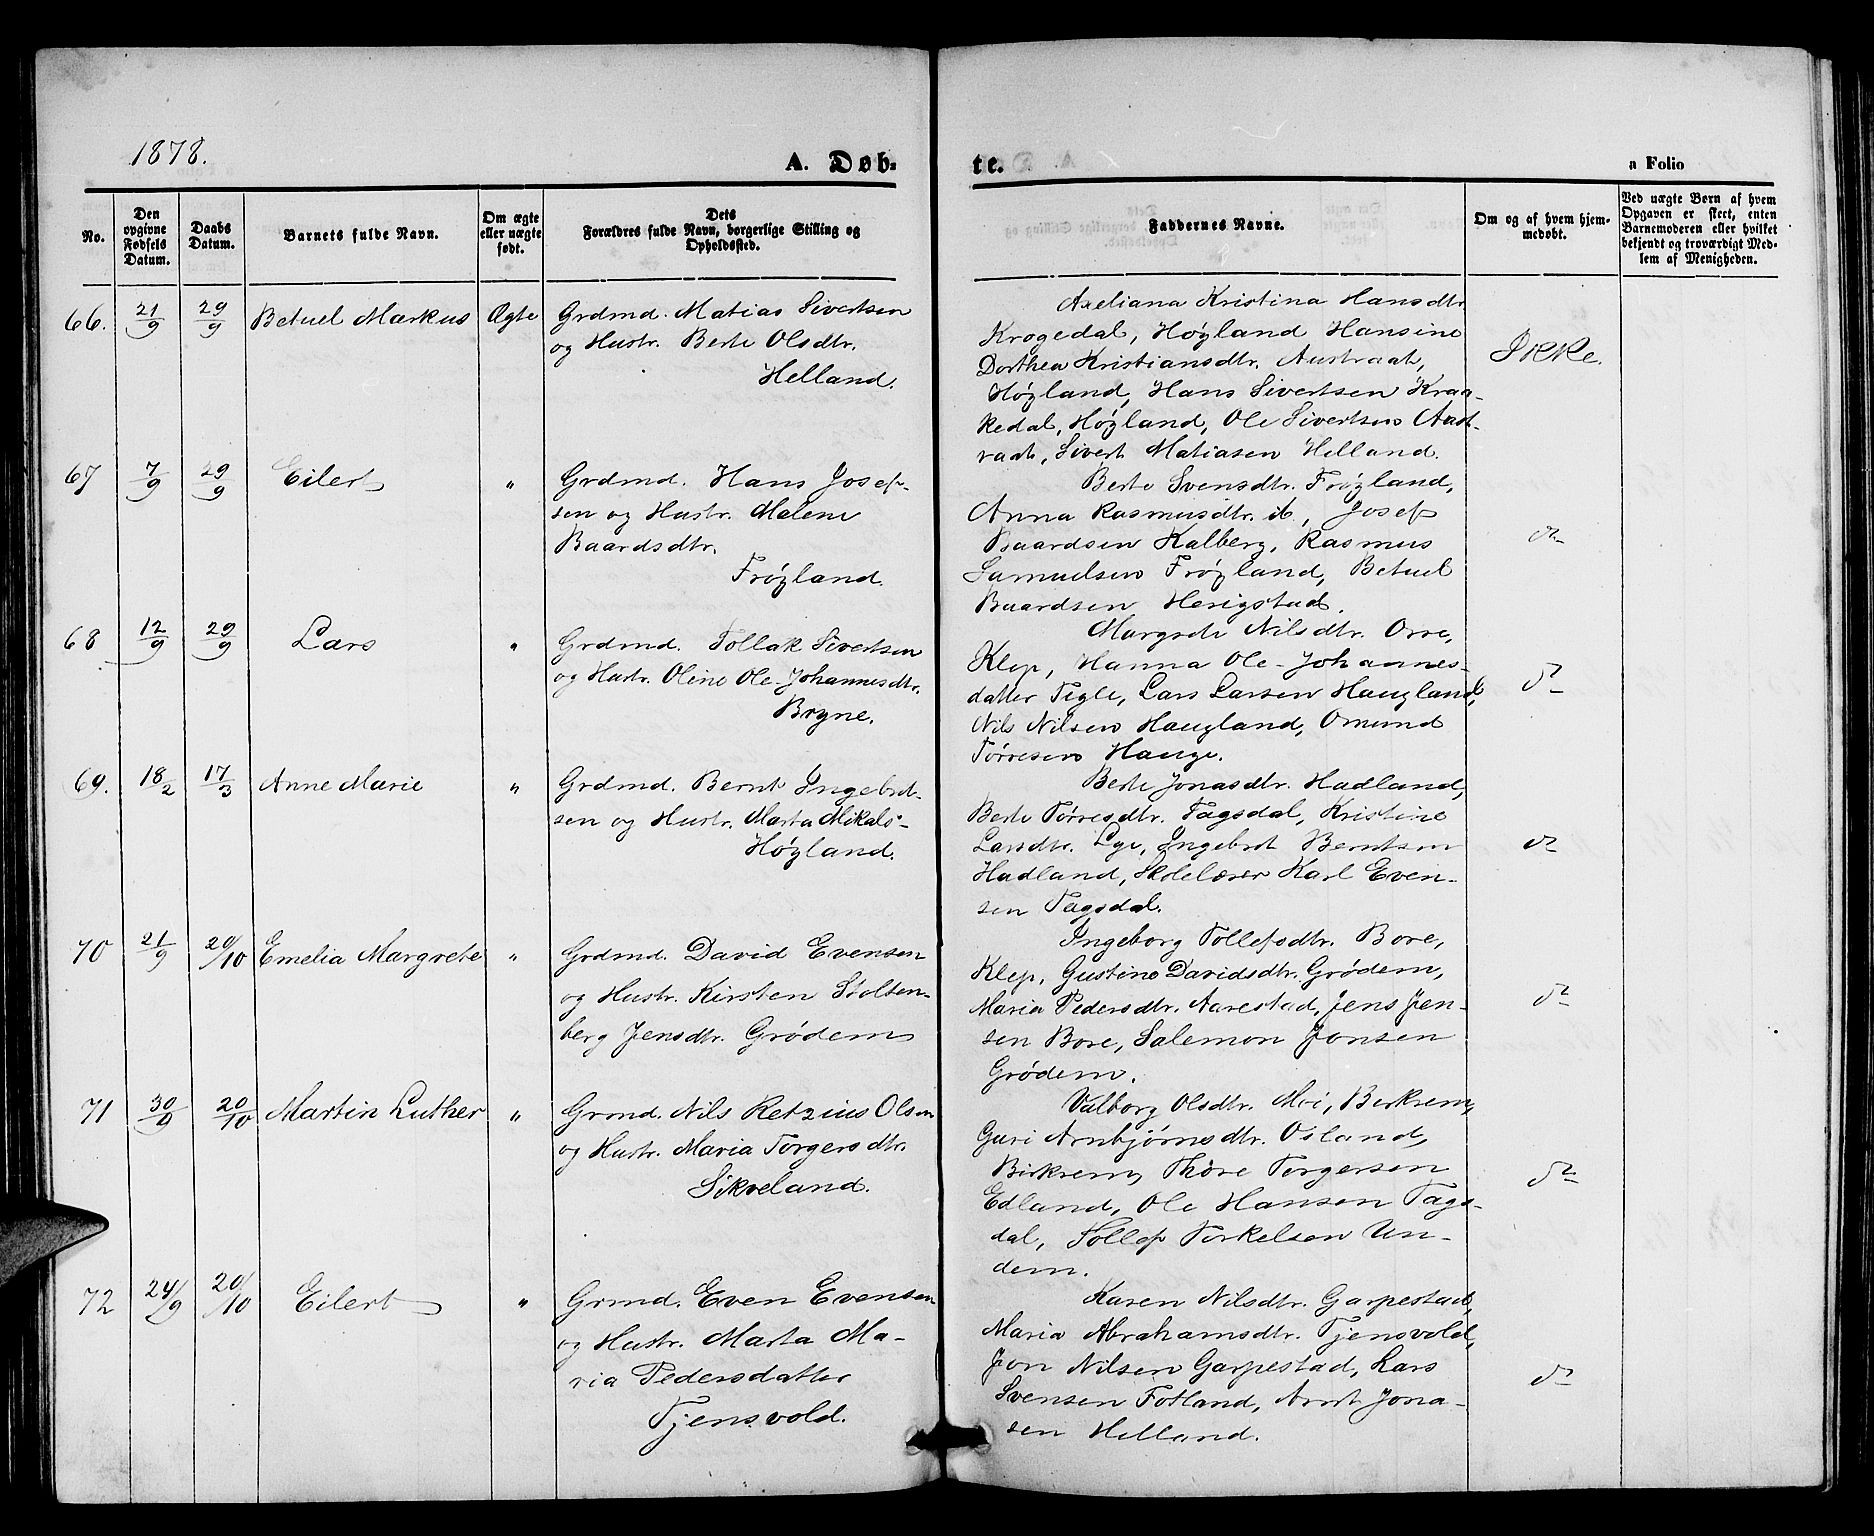 1878.
A. Døb-
te.
a Folio
No.
Den
opgivne
Fødsels
Datum.
Daabs
Datum.
Barnets fulde Navn.
Om ægte
eller uægte
født.
Dets
Forældres fulde Navn, borgerlige Stilling og
Opholdssted.
Faddernes Navne.
Om og af hvem hjem-
medøbt.
Ved uægte Børn af hvem
Opgaven er skeet, enten
Barnemoderen eller hvilket
bekjendt og troværdigt Med-
lem af Menigheden.
66. 21/9 29/9 Betuel Markus Ægte
Grdmd. Matias Sivertsen
og Hustr. Berte Olsdtr.
Helland.
Axeliana Kristina Hansdtr.
Krogedal, Høyland Hansine
Dorthea Kristiansdtr. Austraat,
Høyland, Hans Sivertsen Kraa-
kedal, Høyland, Ole Sivertsen Aust-
raat, Sivert Matiasen Helland.
Ikke.
67 7/9 29/9 Eilert "
Grdmd. Hans Josef-
sen og Hustr. Malene
Baardsdtr.
Frøyland.
Berte Svensdtr. Frøyland,
Anna Rasmusdtr. ib., Josef
Baardsen Kalberg, Rasmus
Samuelsen Frøyland, Betuel
Baardsen Herigstad.
do
68 12/9 29/9 Lars "
Grdmd. Tollak Sivertsen
og Hustr. Oline Ole-Johannesdtr.
Bryne.
Margrete Nilsdtr. Orre,
Klep, Hanna Ole-Johannes-
datter Tigle, Lars Larsen Haugland,
Nils Nilsen Haugland, Omund
Tørresen Hauge.
do
69. 18/2 17/3 Anne Marie "
Grdmd. Bernt Ingebrt-
sen og Hustr. Marta Mikals-
Høyland.
Berte Jonasdtr. Hadland,
Berte Tørresdtr. Tagsdal, Kristine
Larsdtr. Lye, Ingebret Berntsen
Hadland, Skolelærer Karl Even-
sen Tagsdal.
do
70 21/9 20/10 Emelia Margrete "
Grdmd. David Evensen
og Hustr. Kirsten Stolten-
berg Jensdtr. Grødem
Ingeborg Tollefsdtr. Bore,
Klep, Gustine Davidsdtr. Grødem,
Maria Pedersdtr. Aarestad, Jens Jen-
sen Bore, Salemon Jonsen
Grødem.
do
71 30/9 20/10 Martin Luther "
Grmd. Nils Retzius Olsen
og Hustr. Maria Torgersdtr.
Sikveland.
Valborg Olsdtr. Moi, Birkrem,
Guri Arnbjørnsdtr. Osland,
Birkrem, Thøre Torgersen
Edland, Ole Hansen Tags-
dal, Tollef Torkelsen Un-
dem.
do
72 24/9 20/10 Eilert "
Grmd. Even Evensen
og Hustr. Marta Ma-
ria Pedersdatter
Tjensvold.
Karen Nilsdtr. Garpestad,
Maria Abrahamsdtr. Tjensvold,
Jon Nilsen Garpestad, Lars
Svensen Fotland, Arnt Jona-
sen Helland.
do